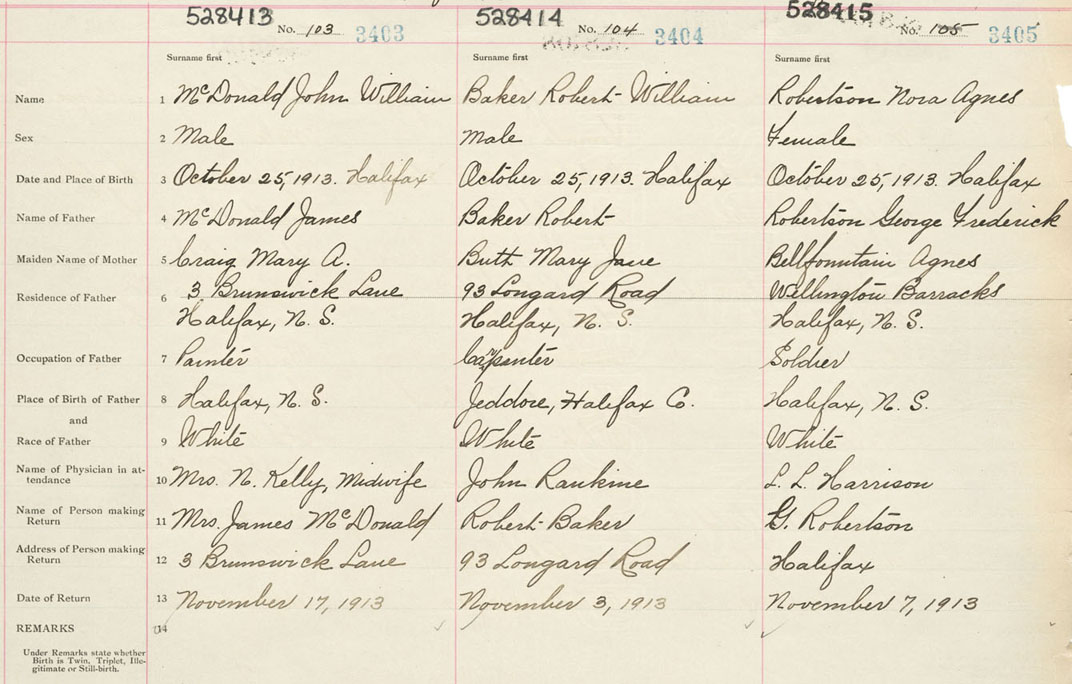 528413 528414 528415
No. 103 3403 No. 104 3404 No. 105 3405
Surname first Surname first Surname first
Name 1 McDonald John William Baker Robert William Robertson Nora Agnes
Sex 2 Male male Female
Date and Place of Birth 3 October 25, 1913. Halifax October 25, 1913. Halifax October 25, 1913. Halifax
Name of Father 4 McDonald James Baker Robert Robertson George Frederick
Maiden Name of Mother 5 Craig Mary A. Buth Mary Jane Bellfountain Agnes
Residence of Father 6 3 Brunswick Lane 93 Longard Road Wellington Barracks
Halifax, N. S. Halifax, N. S. Halifax, N. S.
Occupation of Father 7 Painter Carpenter Soldier
Place of Birth of Father 8 Halifax, N. S. Jeddore, Halifax Co. Halifax, N. S.
and
Race of Father 9 White White White
Name of Physician in at-
tendance 10 Mrs. N. Kelly, Midwife John Rankine L. L. Harrison
Name of Person making
Return 11 Mrs. James McDonald Robert Baker G. Robertson
Address of Person making
Return 12 3 Brunswick Lane 93 Longard Road Halifax
Date of Return 13 November 17, 1913 November 3, 1913 November 7, 1913
REMARKS 14
Under Remarks state whether
Birth is Twin, Triplet, Ille-
gitimate or Still-birth.